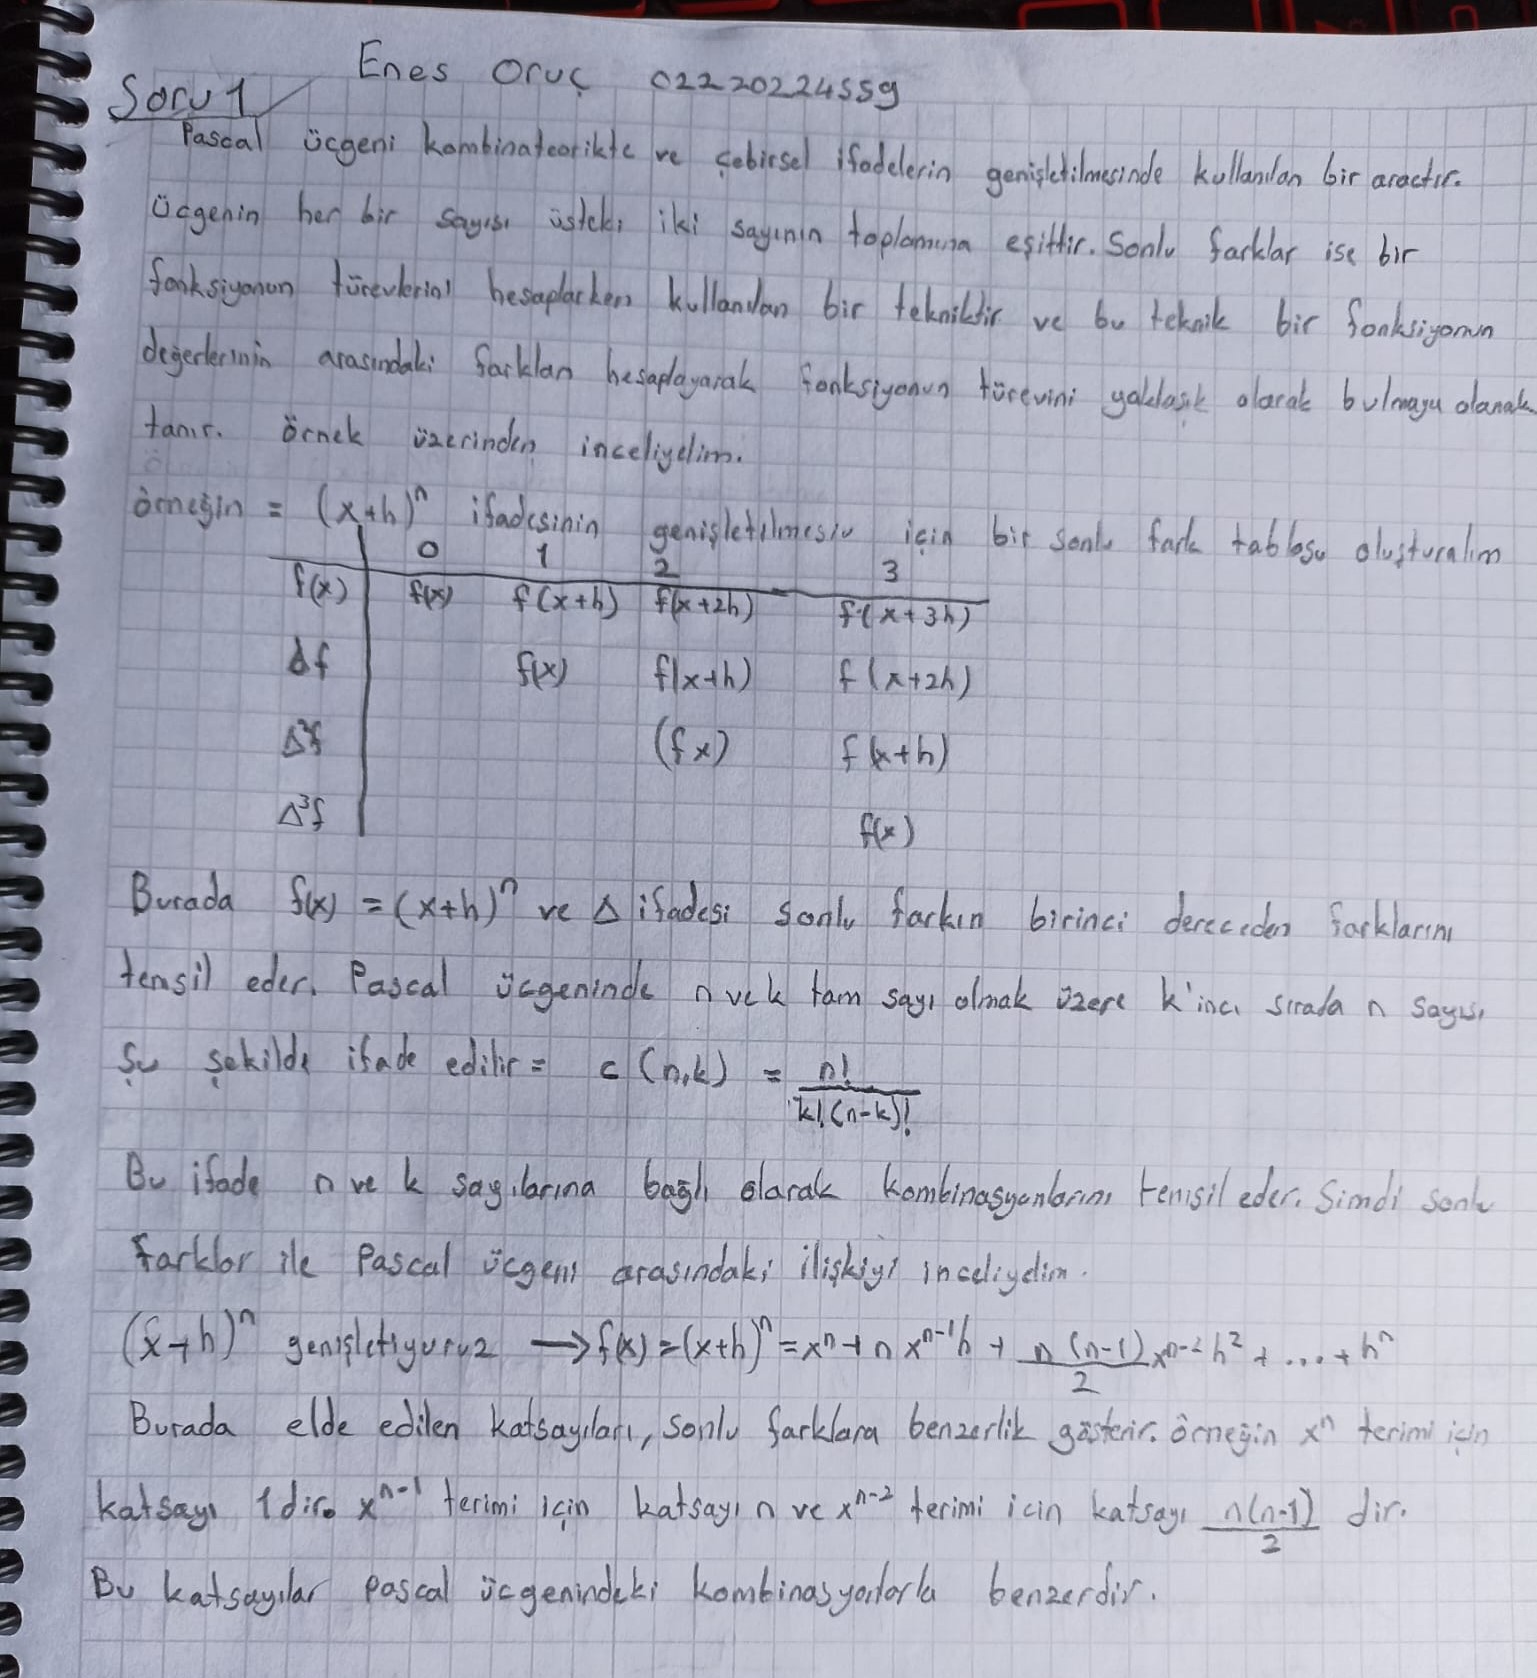 Enes Oruç 02220224559
Soru 1
Pascal üçgeni kombinateorikte ve cebirsel ifadelerin genişletilmesinde kullanılan bir araçtır.
Üçgenin her bir sayısı üsteki iki sayının toplamına eşittir. Sonlu farklar ise bir
fonksiyonun türevlerini hesaplarken kullanılan bir tekniktir ve bu teknik bir fonksiyonun
değerlerinin arasındaki farkları hesaplayarak fonksiyonun türevini yaklaşık olarak bulmaya olanak
tanır. örnek üzerinden inceliyelim.
örneğin = (x+h)^n ifadesinin genişletilmesiu için bir sonlu fark tablosu oluşturalım
0 1 2 3
f(x) f(x) f(x+h) f(x+2h) f(x+3h)
Δf f(x) f(x+h) f(x+2h)
Δ²f (fx) f(x+h)
Δ³f f(x)
Burada f(x) = (x+h)^n ve Δ ifadesi sonlu farkın birinci dereceden farklarını
temsil eder. Pascal üçgeninde n ve k tam sayı olmak üzere k'ıncı sırada n sayısı
Şu şekilde ifade edilir = c(n,k) = n! / k!(n-k)!
Bu ifade n ve k sayılarına bağlı olarak kombinasyonlarını temsil eder. Simdi sonlu
farklar ile Pascal üçgeni arasındaki ilişkiyi inceliyelim.
(x+h)^n genişletiyoruz → f(x) = (x+h)^n = x^n + n x^{n-1}h + n(n-1)/2 x^{n-2}h² + ... + h^n
Burada elde edilen katsayıları, sonlu farklara benzerlik gösterir. örneğin x^n terimi için
katsayı 1 dir. x^{n-1} terimi için katsayı n ve x^{n-2} terimi icin katsayı n(n-1)/2 dir.
Bu katsayılar pascal üçgenindeki kombinasyonlarla benzerdir.